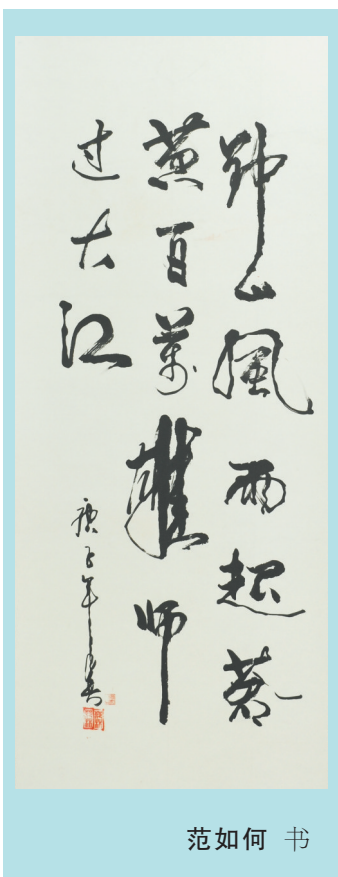 钟山風雨起苍
黄百萬雄师
过大江
庚子年
范如何 书